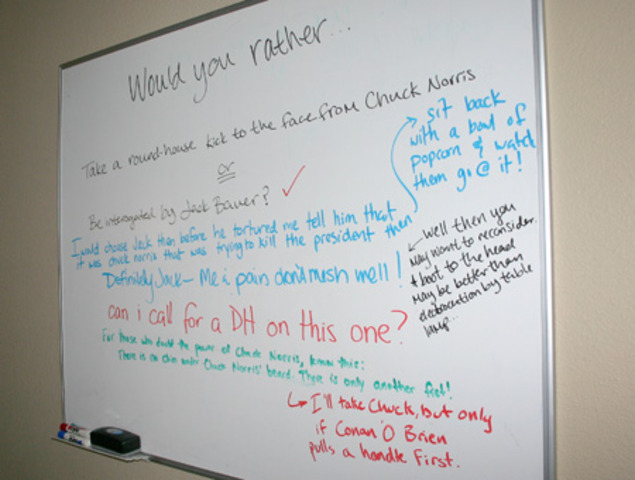 Would you rather...
Take a round-house kick to the face from Chuck Norris
or
Be interrogated by Jack Bauer? ✓
I would choose Jack then before he tortured me tell him that
it was chuck norris that was trying to kill the president then
→ sit back
with a bowl of
popcorn & watch
them go @ it!
Definitely Jack - Me & pain don't mush well!
← Well then you
may want to reconsider.
A boot to the head
may be better than
electrocution by table
lamp...
can i call for a DH on this one?
For those who doubt the power of Chuck Norris, know this:
There is no chin under Chuck Norris' beard. There is only another fist!
↳ I'll take Chuck, But only
if Conan O'Brien
pulls a handle First.